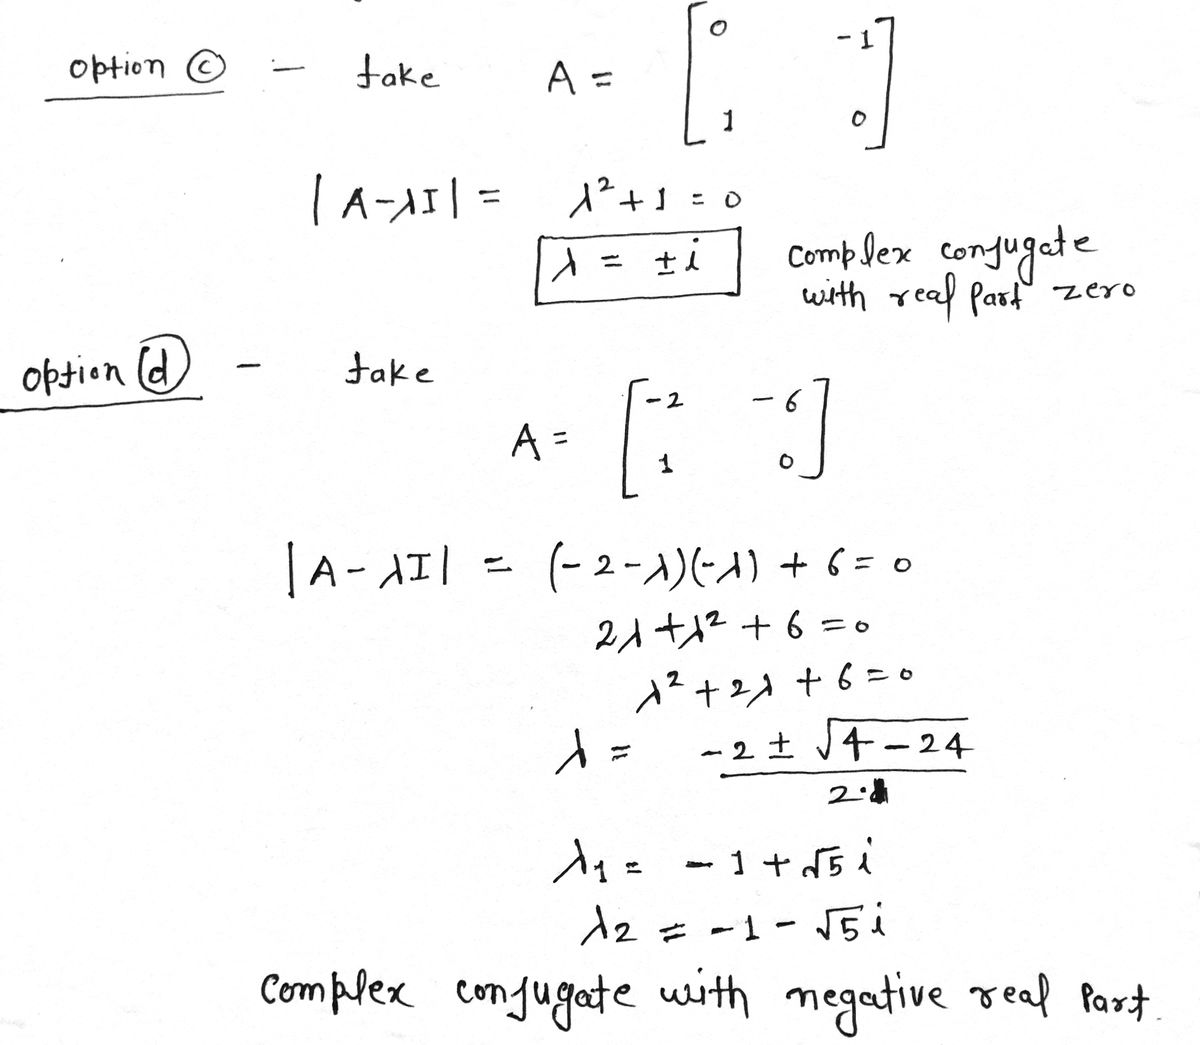 option ⓒ - take A = [ 0 -1
1 0 ]
|A-λI| = λ²+1 = 0
λ = ±i complex conjugate
with real part zero
option ⓓ - take
A = [ -2 -6
1 0 ]
|A-λI| = (-2-λ)(-λ) + 6 = 0
2λ+λ² + 6 = 0
λ² + 2λ + 6 = 0
λ = -2 ± √4-24
2·1
λ1 = -1 + √5 i
λ2 = -1 - √5 i
Complex conjugate with negative real Part.